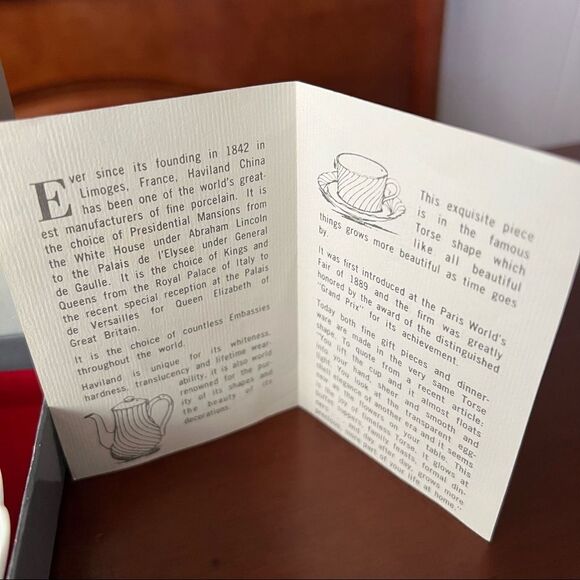 Ever since its founding in 1842 in
Limoges, France, Haviland China
has been one of the world's great-
est manufacturers of fine porcelain. It is
the choice of Presidential Mansions from
the White House under Abraham Lincoln
to the Palais de l'Elysee under General
de Gaulle. It is the choice of Kings and
Queens from the Royal Palace of Italy to
the recent special reception at the Palais
de Versailles for Queen Elizabeth of
Great Britain.
It is the choice of countless Embassies
throughout the world.
Haviland is unique for its whiteness,
hardness, translucency and lifetime wear-
ability, it is also world
renowned for the pur-
ity of its shapes and
the beauty of its
decorations.
This exquisite piece
is in the famous
Torse shape which
like all beautiful
things grows more beautiful as time goes
by.
It was first introduced at the Paris World's
Fair of 1889 and the firm was greatly
honored by the award of the distinguished
"Grand Prix" for its achievement.
Today both fine gift pieces and dinner-
ware are made in the very same Torse
shape. To quote from a recent article:
"You lift the cup and it almost floats
into your hand, sheer and smooth and
light. You look at the transparent and egg-
shell elegance of another era and it seems
as if the flowers on your table. This
is the magic of timeless Torse. It glows at
buffet suppers, family feasts, formal din-
ners, and day after day, grows more
and more part of your life at home."